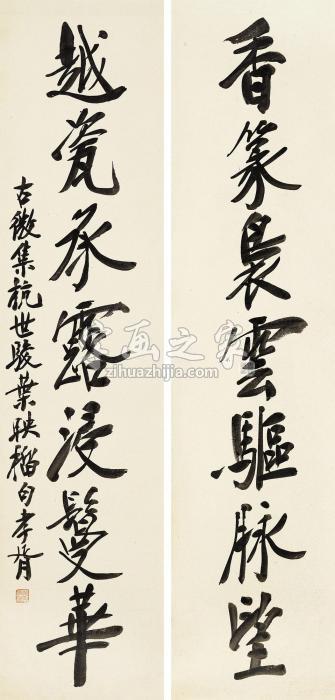 香篆裊雲驅脉望
越瓷承露浸鬘華
古微集杭世駿葉映榴句孝胥
字画之家
zihuazhijia.com